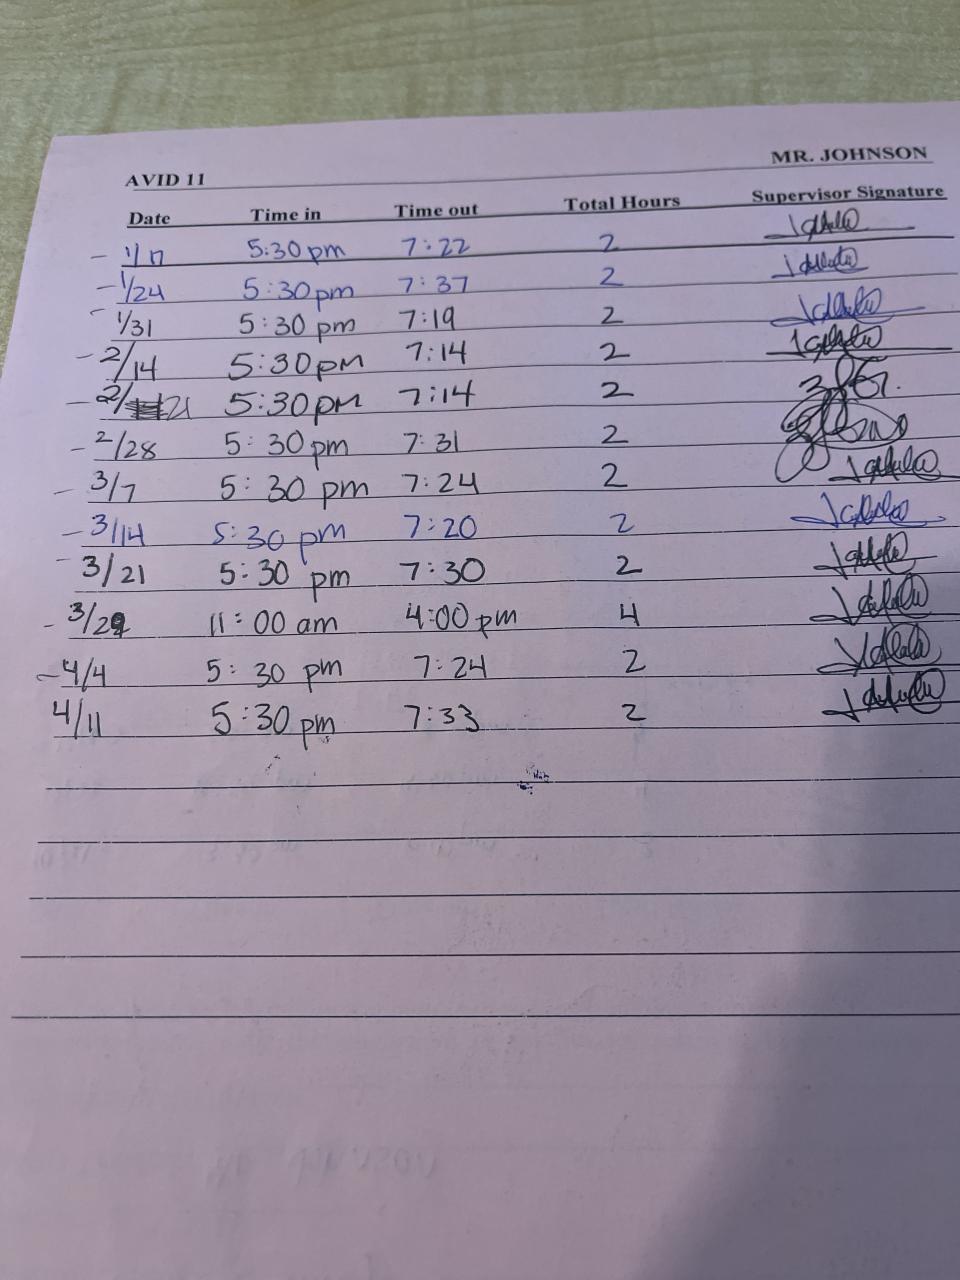 AVID 11 MR. JOHNSON
Date Time in Time out Total Hours Supervisor Signature
- 1/17 5:30 pm 7:22 2
- 1/24 5:30 pm 7:37 2
- 1/31 5:30 pm 7:19 2
- 2/14 5:30 pm 7:14 2
- 2/21 5:30 pm 7:14 2
- 2/28 5:30 pm 7:31 2
- 3/7 5:30 pm 7:24 2
- 3/14 5:30 pm 7:20 2
- 3/21 5:30 pm 7:30 2
- 3/29 11:00 am 4:00 pm 4
- 4/4 5:30 pm 7:24 2
4/11 5:30 pm 7:33 2